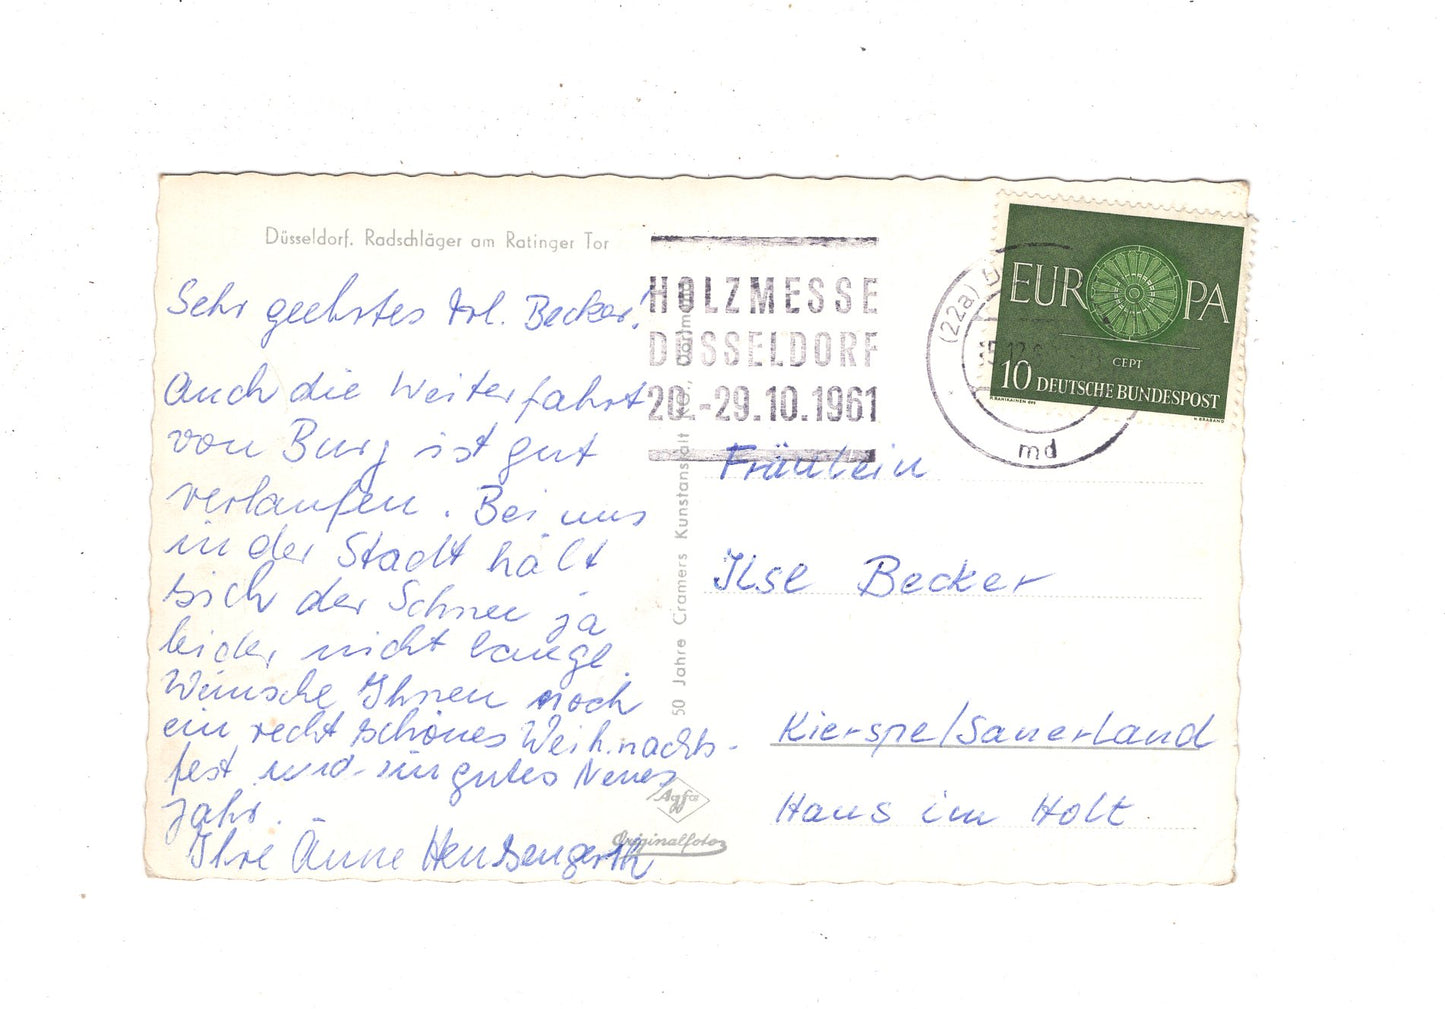 Düsseldorf. Radschläger am Ratinger Tor
Sehr geehrtes Frl. Becker!
Auch die Weiterfahrt
von Burg ist gut
verlaufen. Bei uns
in der Stadt hält
sich der Schnee ja
leider nicht lange.
Wünsche Ihnen noch
ein recht schönes Weihnachts-
fest und ein gutes Neues
Jahr.
Ihre Änne
50 Jahre Cramers Kunstanstalt KG., Dortmund
Agfa
Originalfoto
HOLZMESSE
DÜSSELDORF
20.-29.10.1961
(22a) D
md
EUROPA
CEPT
10 DEUTSCHE BUNDESPOST
Fräulein
Ilse Becker
Kierspe/Sauerland
Haus im Holt.